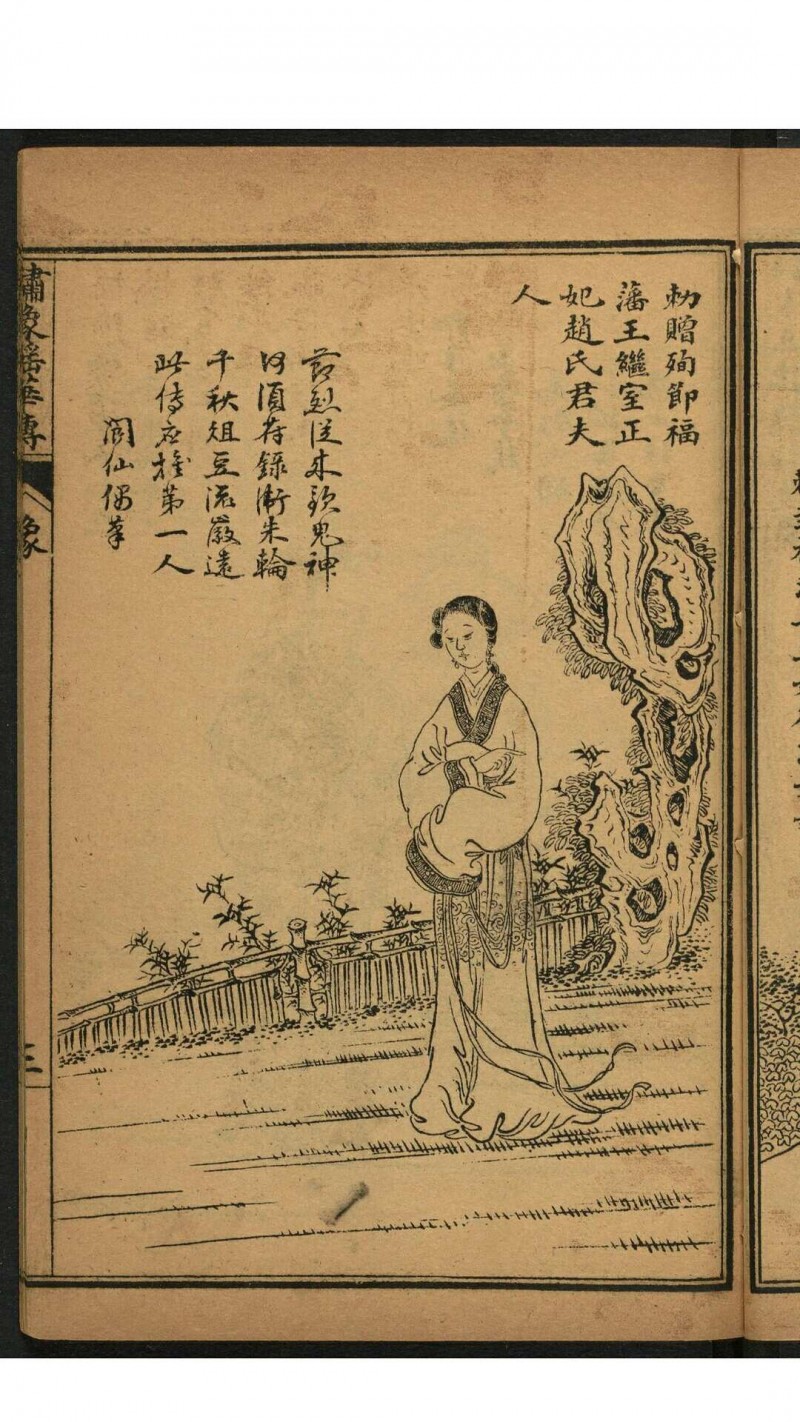 勅贈殉節福
藩王繼室正
妃趙氏君夫
人
節烈從来欽鬼神
何須存錄漸朱輪
千秋俎豆流徽遠
此傳應推第一人
閬仙偶筆
繡像瑤華傳
像
三